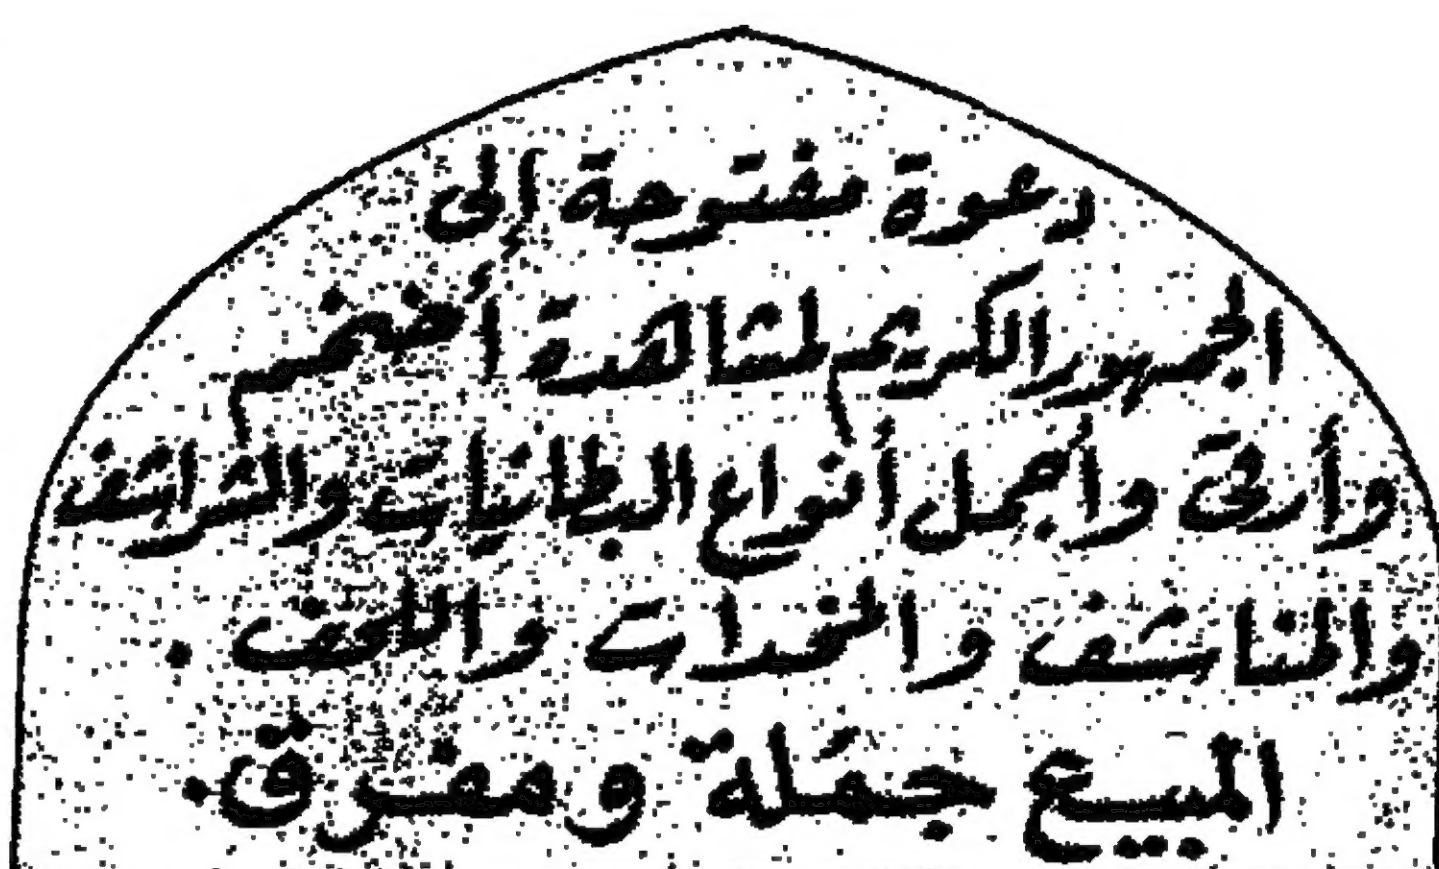 دعوة مفتوحة إلى
الجمهور الكريم لمشاهدة أضخم
وأرقى وأجمل أنواع البطانيات والشراشف
والمناشف والمخدات واللحف .
المبيع جملة ومفرّق .